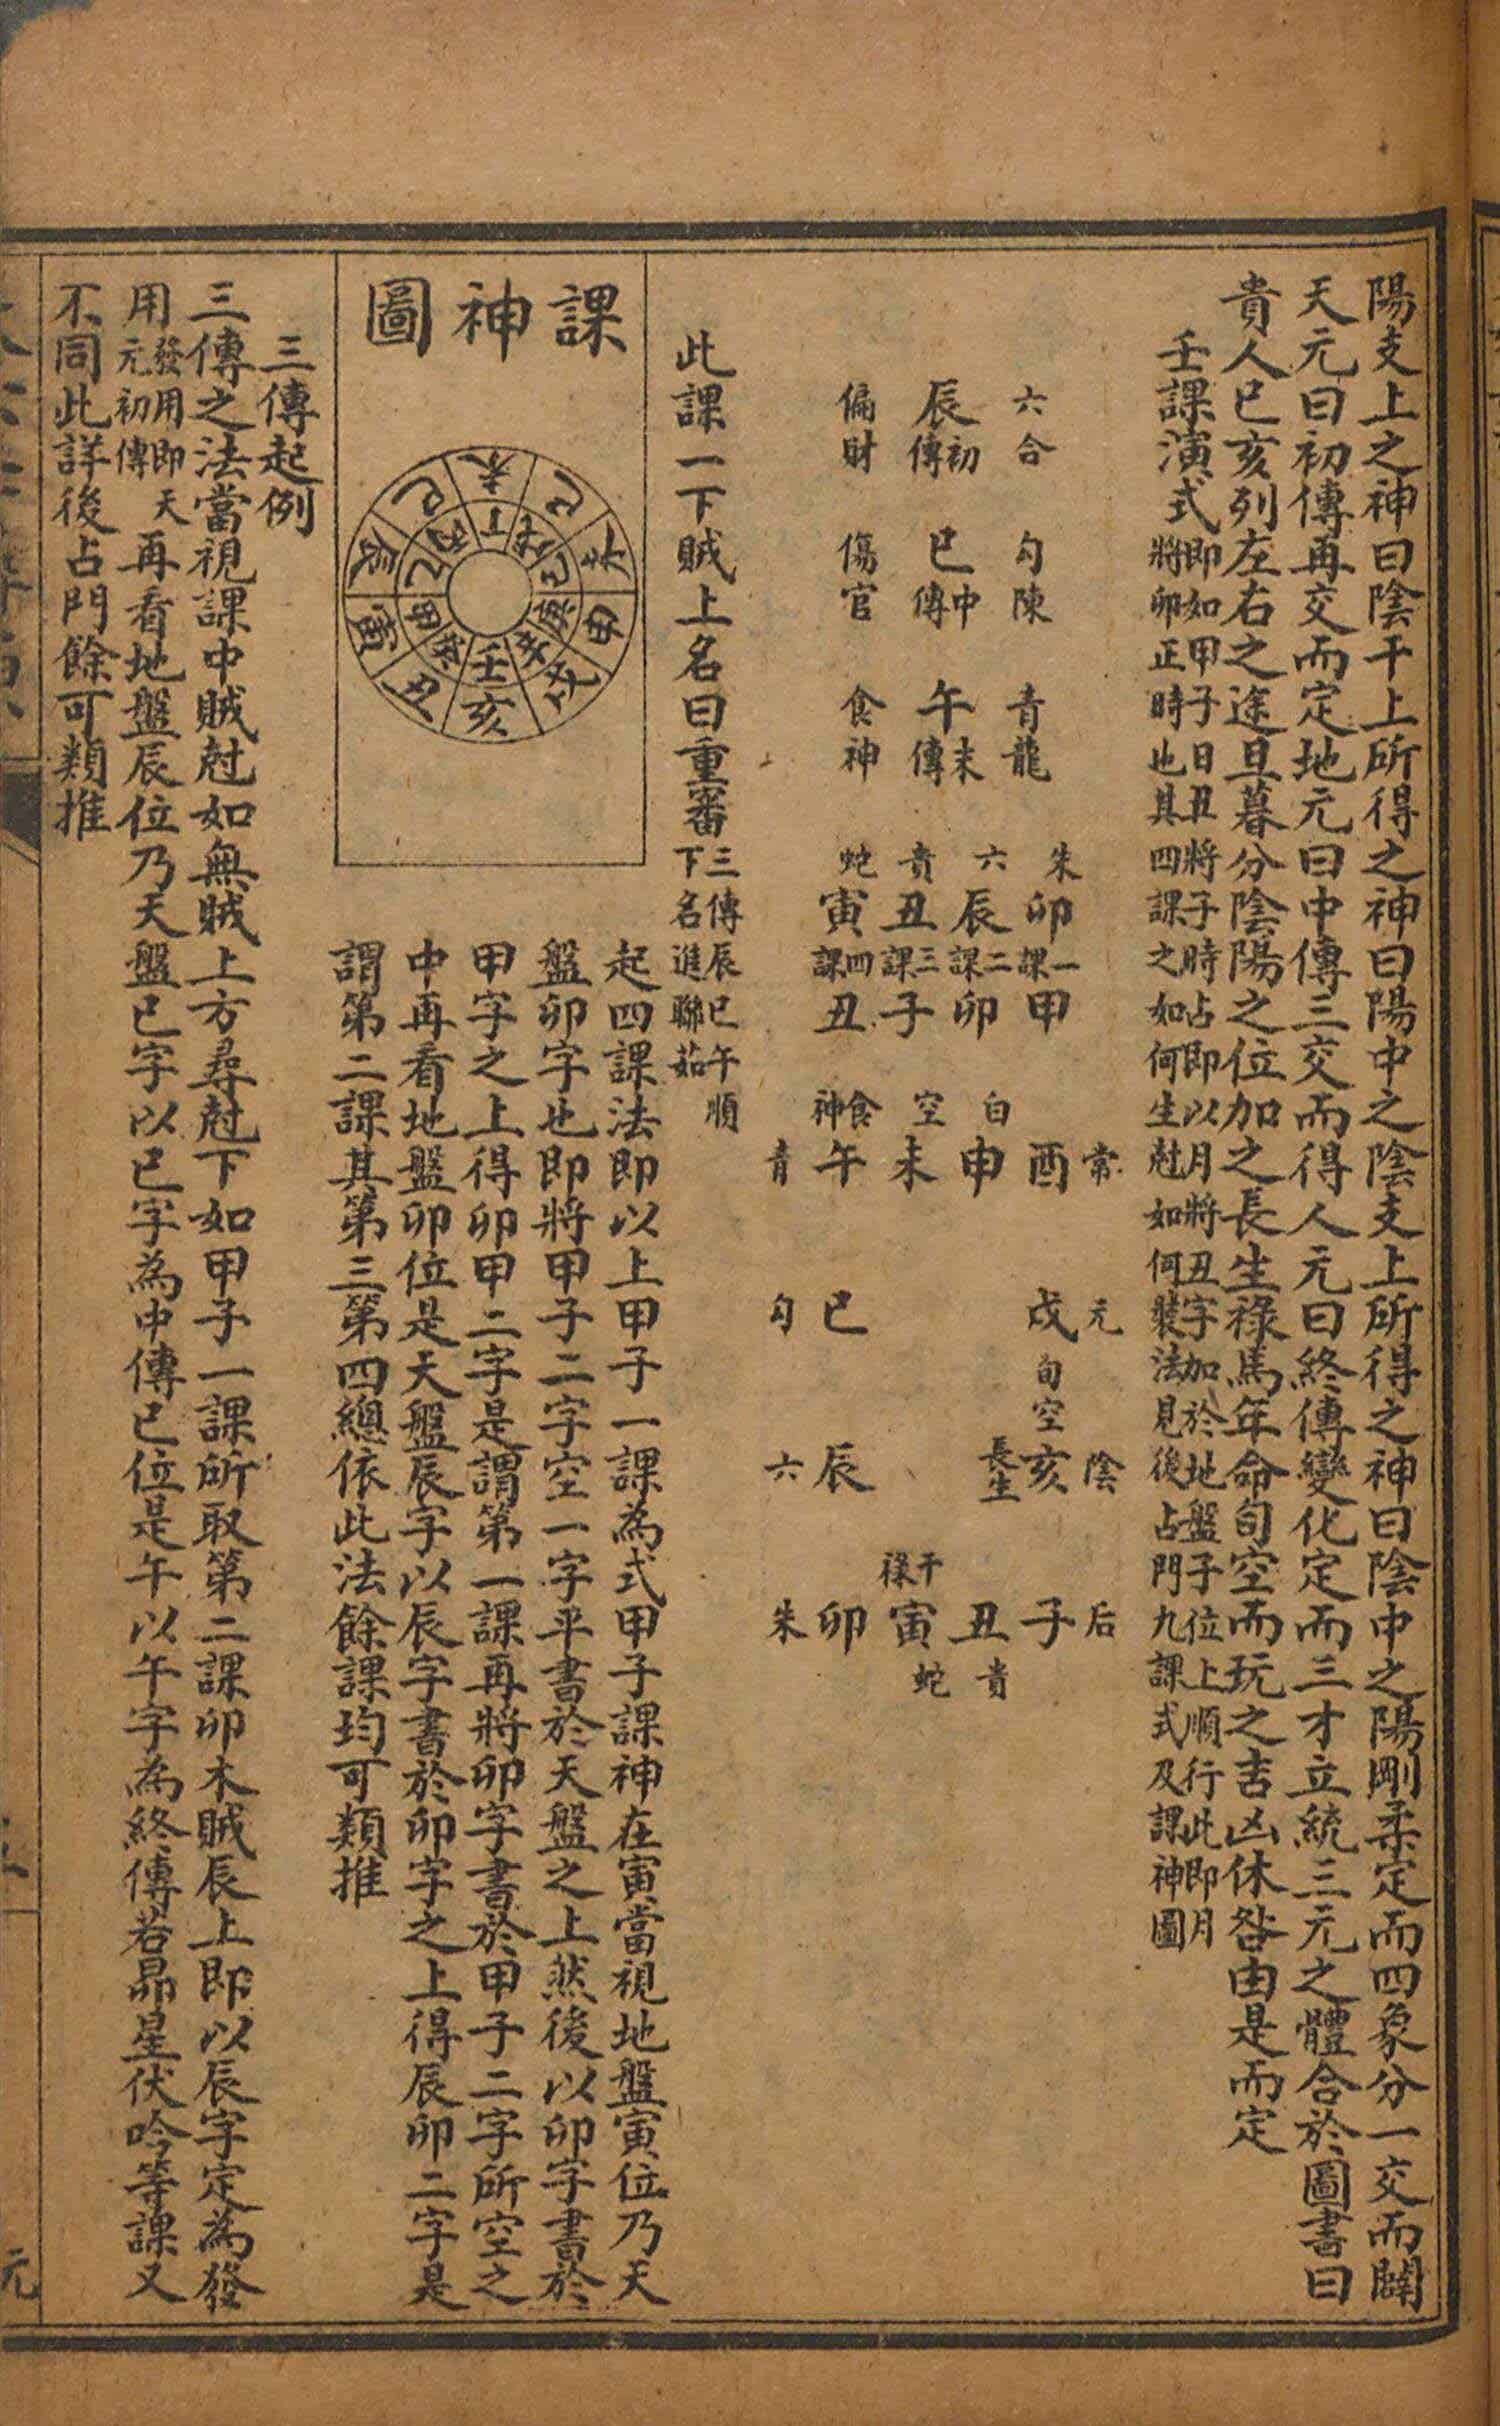 陽支上之神曰陰干上所得之神曰陽中之陰支上所得之神曰陰中之陽剛柔定而四象分一交而闢
天元曰初傳再交而定地元曰中傳三交而得人元曰終傳變化定而三才立統三元之體合於圖書曰
貴人巳亥列左右之途旦暮分陰陽之位加之長生祿馬年命旬空而玩之吉凶休咎由是而定
壬課演式
即如甲子日丑將子時占即以月將丑字加於地盤子位上順行此即月
將卯正時也其四課之如何生尅如何裝法見後占門九課式及課神圖
六合 勾陳 青龍
辰初傳 巳中傳 午末傳
偏財 傷官 食神
朱 六 貴 蛇
卯 辰 丑 寅
一課 二課 三課 四課
甲 卯 子 丑
白 空 食神
常 酉 申 未 午 青
元 戌 巳 勾
旬空
陰 亥 長生 辰 六
干祿
后 子 丑 寅 卯 朱
貴 蛇
此課一下賊上名曰重審
三傳辰巳午順
下名進聯茹
課神圖
未 丁
巳 辰 乙 寅 甲 丑 癸 亥 壬 戌 辛 申 庚
起四課法即以上甲子一課為式甲子課神在寅當視地盤寅位乃天
盤卯字也即將甲子二字空一字平書於天盤之上然後以卯字書於
甲字之上得卯甲二字是謂第一課再將卯字書於甲子二字所空之
中再看地盤卯位是天盤辰字以辰字書於卯字之上得辰卯二字是
謂第二課其第三第四總依此法餘課均可類推
三傳起例
三傳之法當視課中賊尅如無賊上方尋尅下如甲子一課所取第二課卯木賊辰上即以辰字定為發
用發用即天元初傳再看地盤辰位乃天盤巳字以巳字為中傳巳位是午以午字為終傳若昴星伏吟等課又
不同此詳後占門餘可類推
元